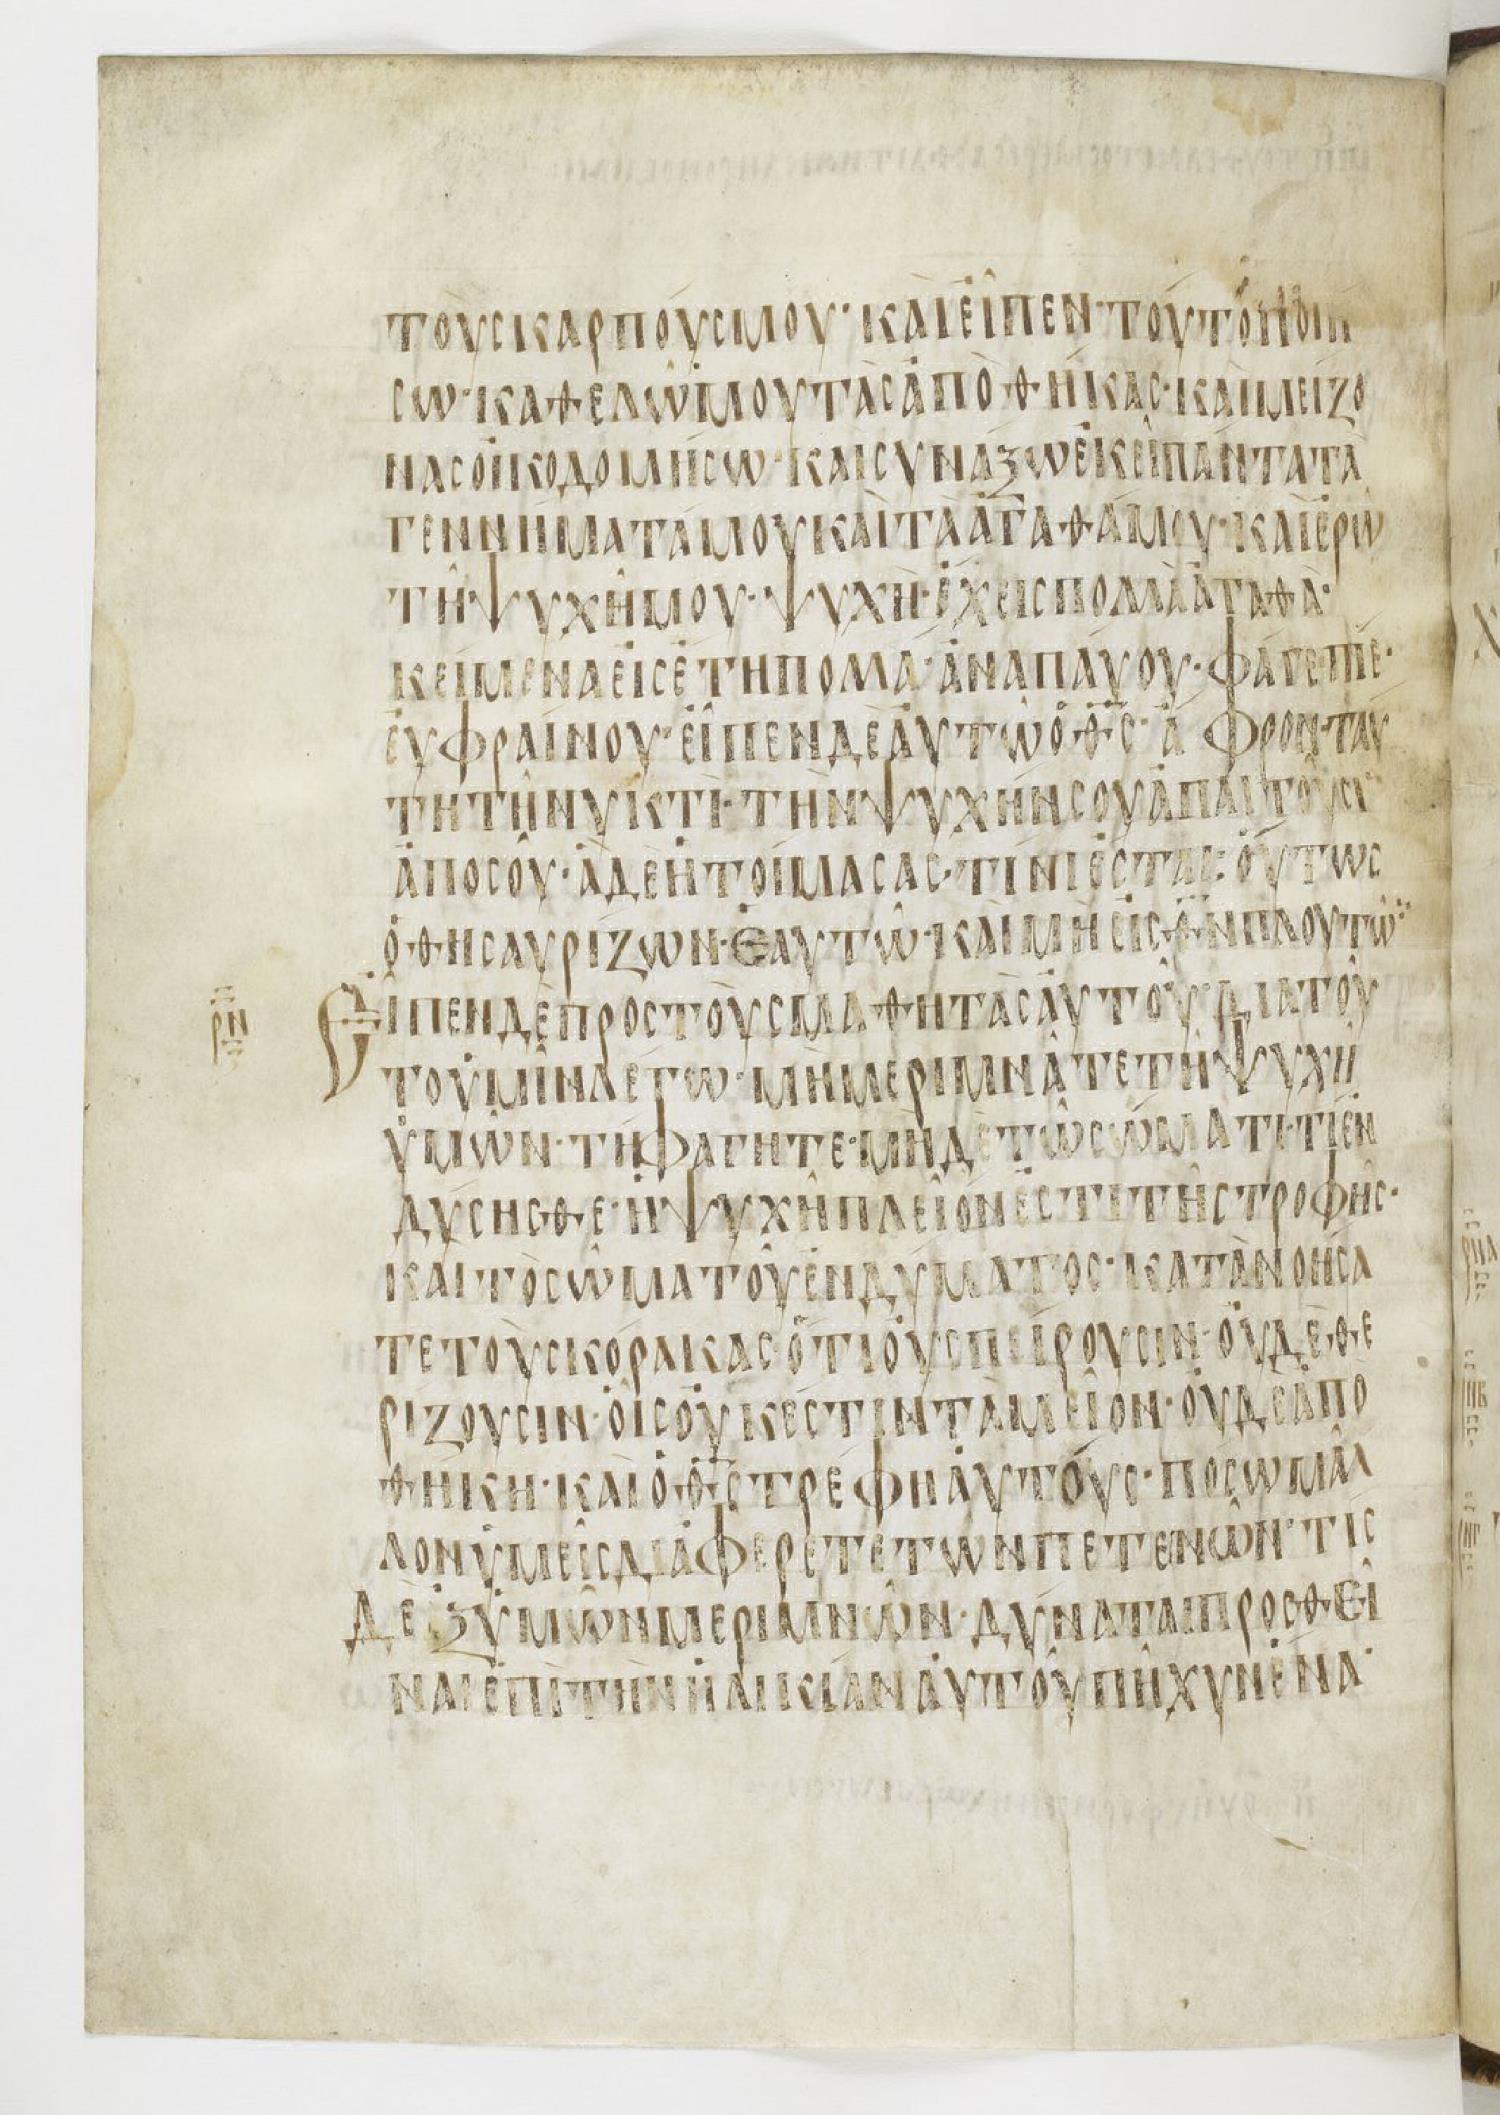 τοὺσκαρποὺσμου· καὶεἶπεν· τοῦτοποιη
σω· καθελῶμουτὰσἀποθήκασ· καὶμείζο
νασοἰκοδομήσω· καὶσυνάξωἐκεῖπάντατὰ
γεννήματάμουκαὶτὰἀγαθάμου· καὶἐρῶ
τῆψυχῆμου· ψυχὴ· ἔχεισπολλὰἀγαθὰ·
κείμεναεἰσἔτηπολλά· ἀναπαύου· φάγε· πίε·
εὐφραίνου· εἶπενδὲἀυτῶὁθσ· ἄφρον· ταύ
τητῆνυκτὶ· τὴνψυχήνσουἀπαιτοῦσι
ἀποσοῦ· ἃδὲἡτοίμασασ· τίνιἔσται: ὅυτωσ
ὁθησαυρίζων· ἑαυτῶ· καὶμὴεἰσθνπλουτῶ·
ρν Εἶπενδὲπρὸστοὺσμαθητὰσἀυτοῦ· διατοῦ
τοὑμῖνλέγω· μὴμεριμνᾶτετῆψυχῆ
ὑμῶν· τὴφάγητε· μηδὲτῶσώματι· τίἐν
δύσησθε· ἡψυχῆπλεῖόνἐστιτῆστροφῆσ·
καὶτὸσῶματοῦἐνδύματοσ· κατανοήσα
τετοὺσκόρακασ· ὅτιοὐσπείρουσιν· οὐδὲθε
ρίζουσιν· οἷσοὐκεστινταμεῖον· οὐδὲἀπο
θήκη· καὶὁθστρέφηἀυτούσ· πόσωμᾶλ
λονὑμεῖσδιαφέρετετῶνπετεινῶν· τίσ
δὲἐξὑμῶνμεριμνῶν· δύναταιπροσθεῖ
ναιἐπὶτὴνἡλικίανἀυτοῦπῆχυνἕνα·